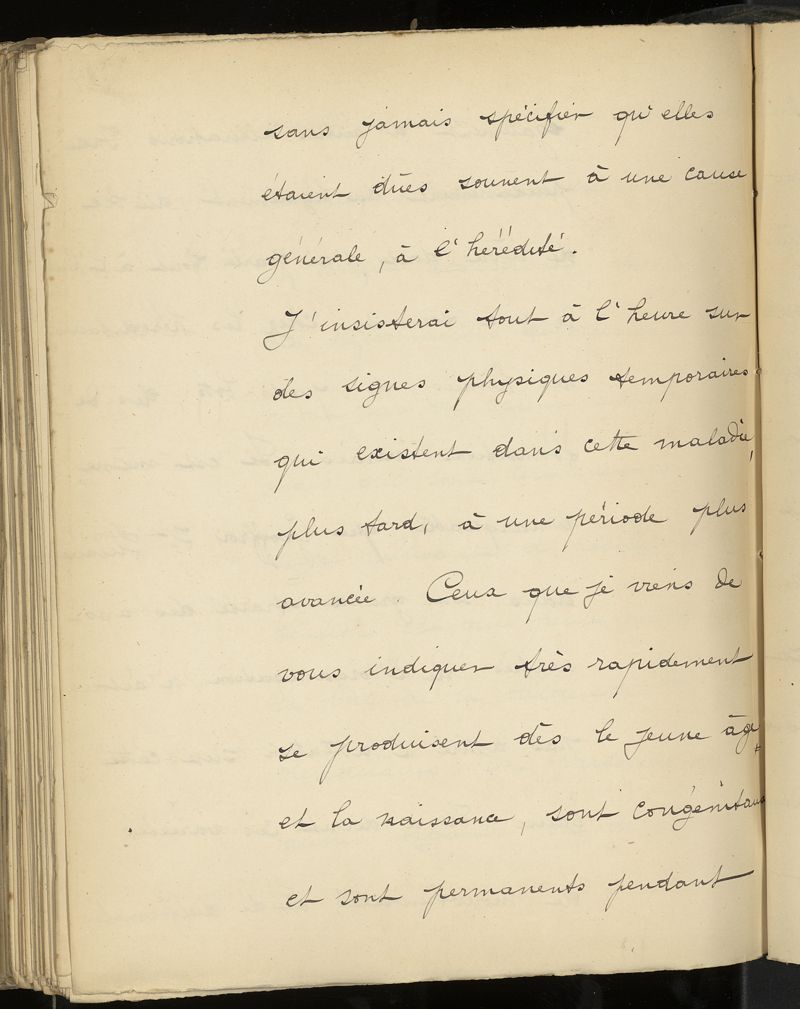 sans jamais spécifier qu'elles
étaient dûes souvent à une cause
générale, à l'hérédité.
J'insisterai tout à l'heure sur
des signes physiques temporaires
qui existent dans cette maladie,
plus tard, à une période plus
avancée. Ceux que je viens de
vous indiquer très rapidement
se produisent dès le jeune âge
et la naissance, sont congénitaux
et sont permanents pendant